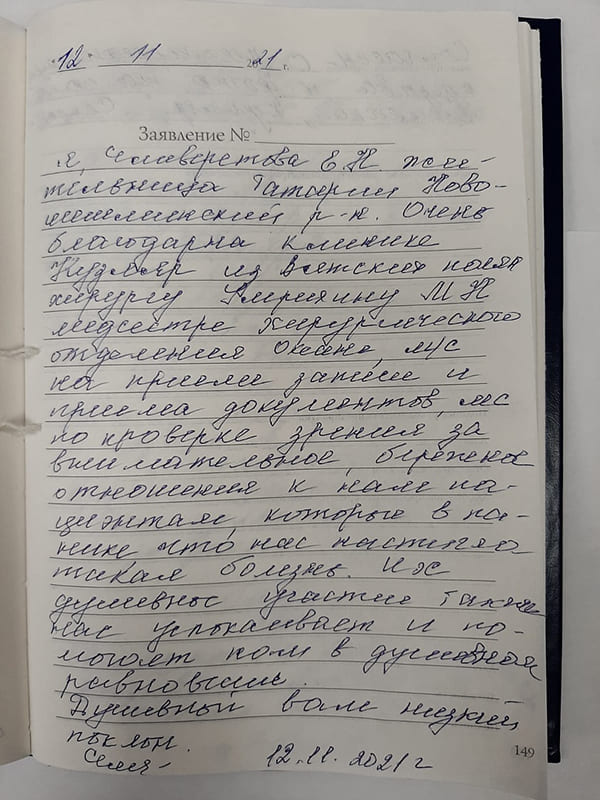 "12" 11 2021 г.
Заявление №
Я, Селиверстова Е Н. жи-
тельница Татарии Ново-
шешминский р-н. Очень
благодарна клинике
Кузляр из Вятские поляны
хирургу М Н
медсестре хирургического
отделения Оксане, м/с
на приёме записи и
приёма документов, м/с
по проверке зрения за
внимательное, бережное
отношения к нам па-
циэнтам, которые в па-
нике что нас настигло
такая болезнь. Их
душевное участие также
нас успокаивает и по-
могает нам в душевном
равновесии.
Душевный вам низкий
поклон.
12.11.2021 г
149